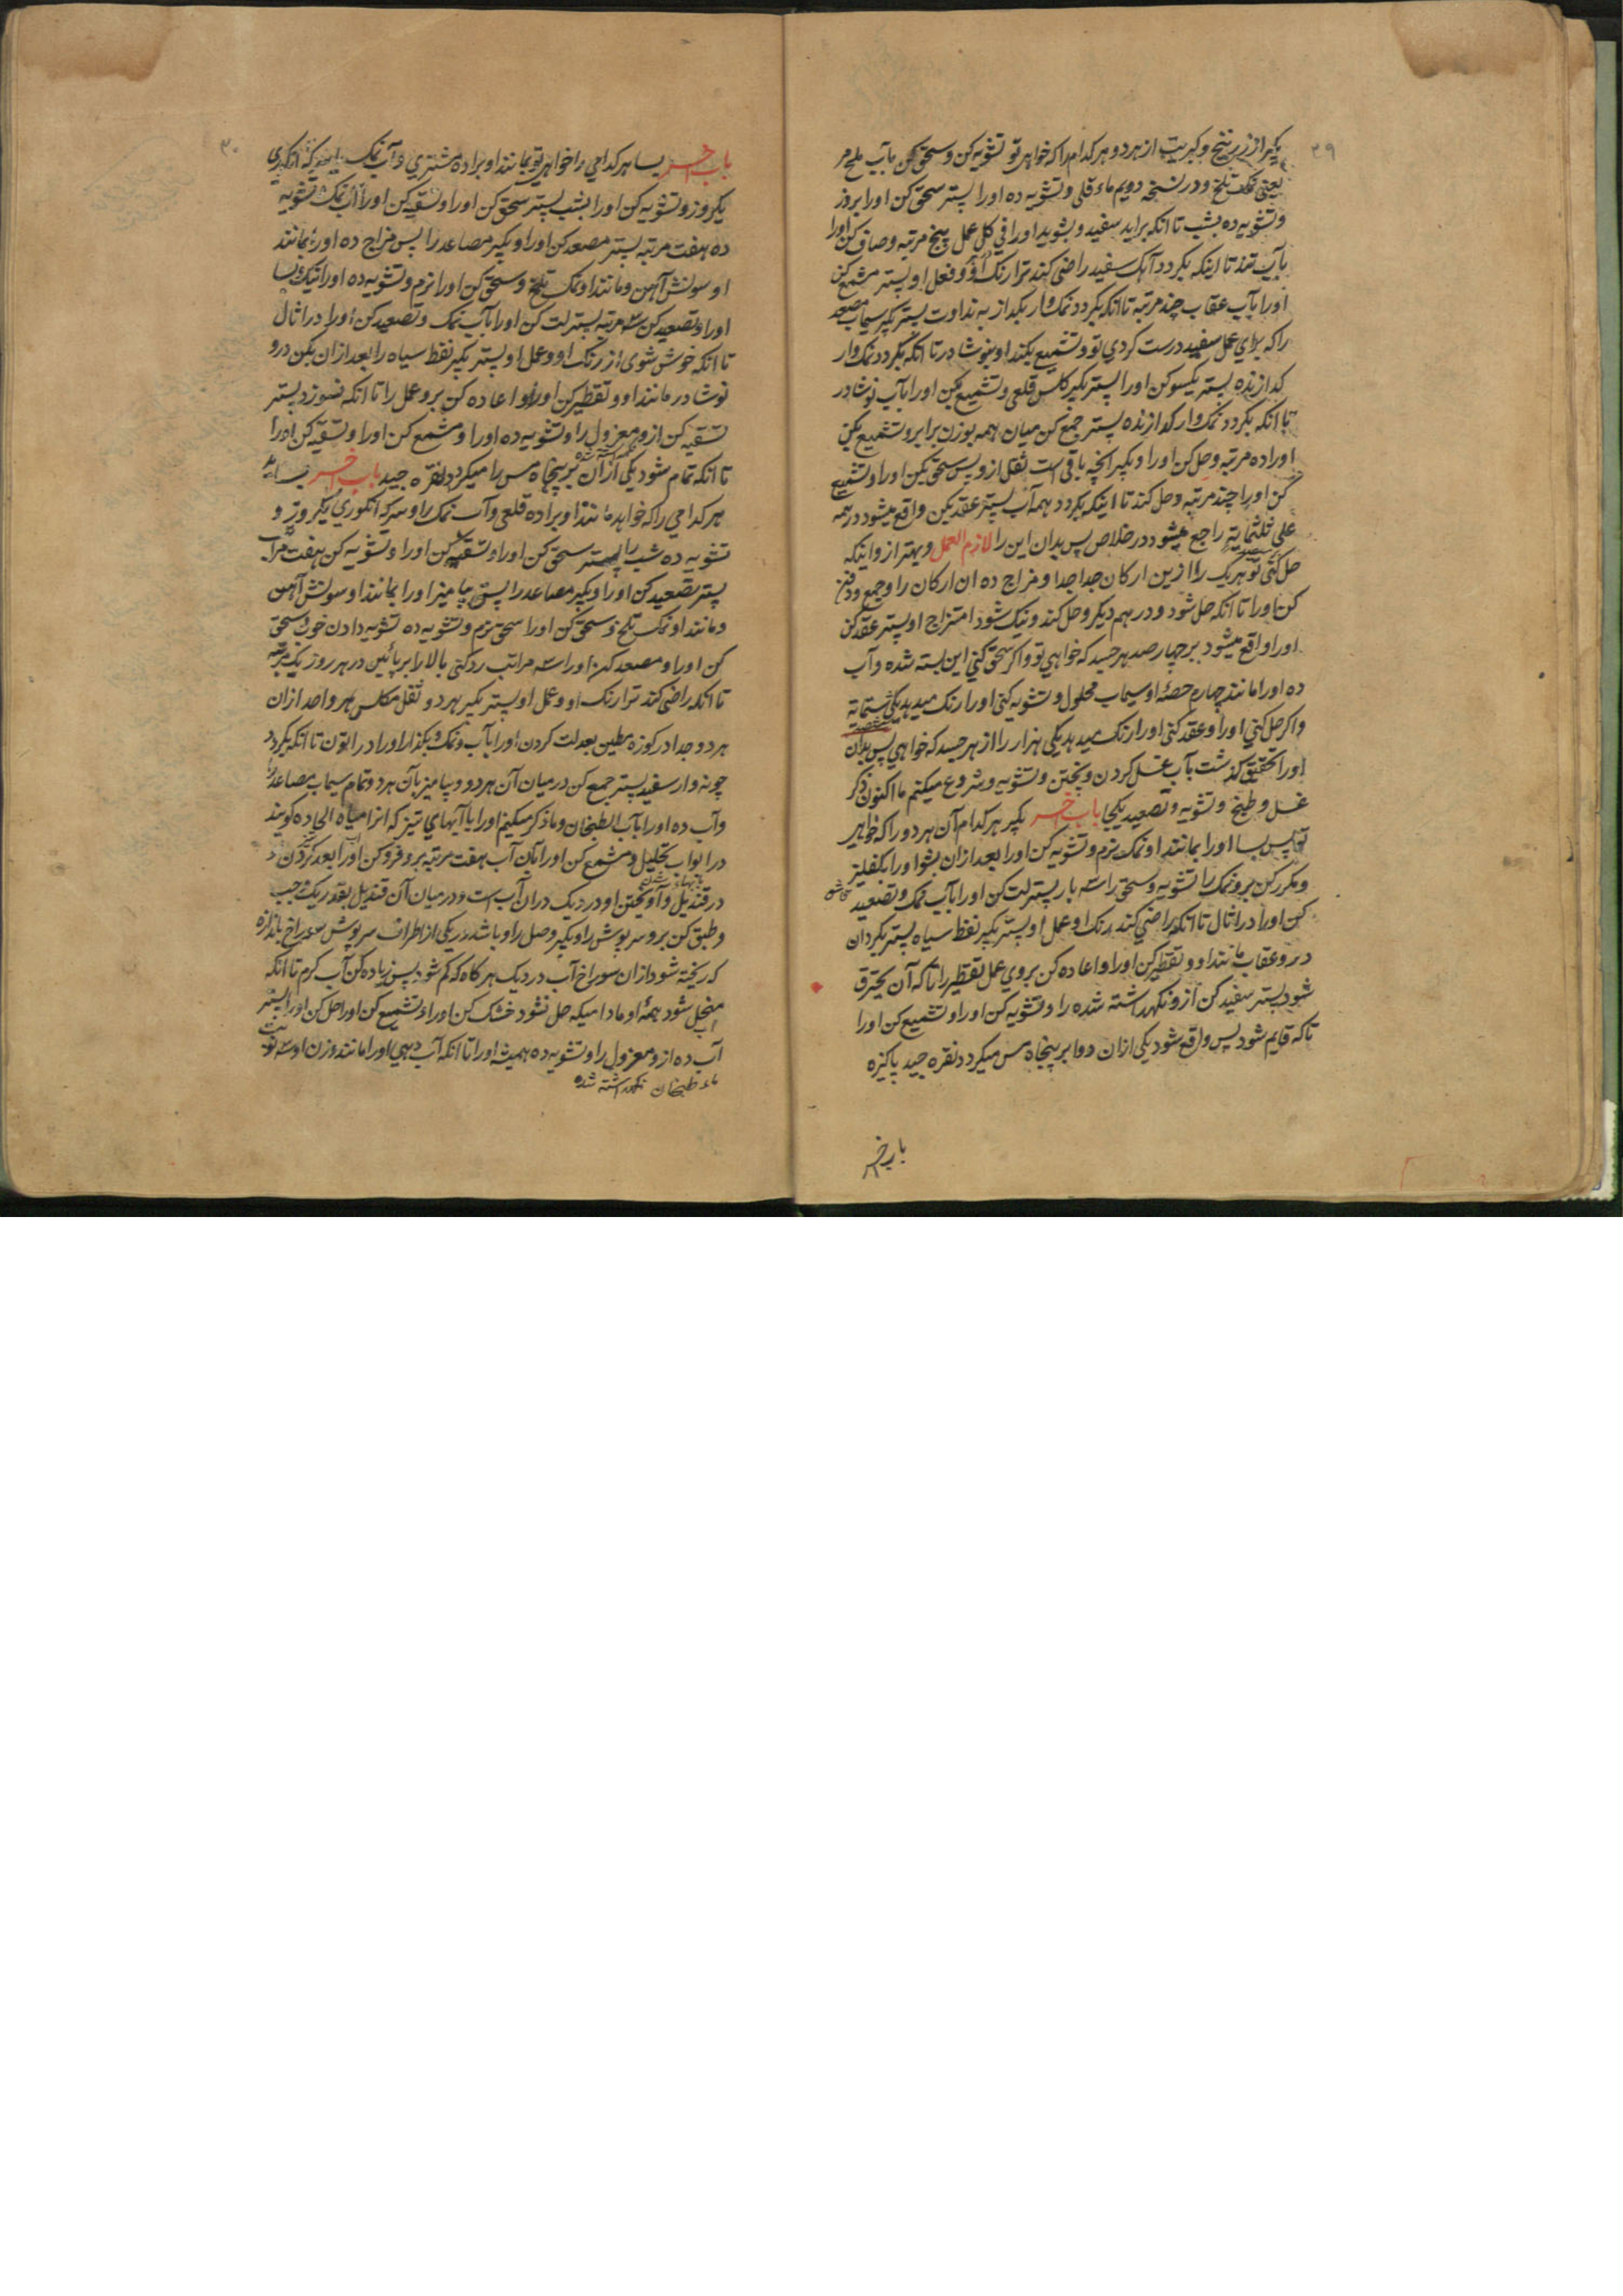 ۲۹
بگیر از زرنیخ و کبریت از هر دو هر کدام را که خواهی تو تشویه کن و سحق کن بآب ملح مر
یعنی نمک تلخ و در نسخه دویم ماء قلی و تشویه ده او را پستر سحق کن او را بروز
و تشویه ده بشب تا انکه براید سفید و بشوید او را فی کل عمل پنج مرتبه و صاف کن او را
بآب تند تا اینکه بکردد آهک سفید راضی کند ترا رنک او و فعل او پستر مشمع کن
او را بآب عقاب چند مرتبه تا انکه بکردد نمک وار بکدازد به نداوت پستر بگیر سیماب مصعد
را که برای عمل سفید درست کردی تو و تشمیع بکند او بنوشادر تا انکه بکردد نمک وار
کدازنده پستر یکسو کن او را پستر بگیر کلس قلعی و تشمیع بکن او را بآب نوشادر
تا انکه بکردد نمک وار کدازنده پستر جمع کن میان همه بوزن برابر و تشمیع بکن
او را ده مرتبه و حل کن او را و بگیر انچه باقی است ثقل ازو پس سحق بکن او را و تشمیع
کن او را چند مرتبه و حل کند تا اینکه بکردد همه آب پستر عقد بکن واقع میشود درهمه
علی ثلثمایة راجع میشود در خلاص پس بدان این را لازم العمل و بهتر ازو اینکه
حل کنی تو هریک را ازین ارکان جدا جدا و مزاج ده ان ارکان را و جمع و دفن
کن او را تا انکه حل شود و در هم دیکر و حل کند و نیک شود امتزاج او پستر عقد کن
او را واقع میشود بر چهار صد هر جسد که خواهی تو و اکر سحق کنی این بسته شده و آب
ده او را مانند چهارم حصه او سیماب محلول و تشویه کنی او را رنک میدهد یکی ستمایة
و اکر حل کنی او را و عقد کنی او را رنک میدهد یکی هزار را از هر جسد که خواهی پس بدان
او را تحقیق کذشت بآب غسل کردن و پختن و تشویه و شروع میکنیم ما اکنون ذکر
غسل و طبخ و تشویه و تصعید یکجا باب اخر بگیر هر کدام آن هر دو را که خواهی
تو پس بسا او را بمانند او نمک نرم و تشویه کن او را بعد ازان بشو او را
و مکرر کن برو نمک را تشویه و سحق را سه بار پستر لت کن او را بآب نمک و تصعید
کن او را در اثال تا انکه راضی کند رنک او عمل او پستر بگیر نفط سیاه پستر بکردان
درو عقاب مانند او و تقطیر کن او را و اعاده کن بروی عمل تقطیر را تا که آن یحترق
شود پستر سفید کن ازو نکهداشته شده را و تشویه کن او را و تشمیع کن او را
تا که قایم شود پس واقع شود یکی ازان دوا بر پنجاه مس میکردد نقره جید پاکیزه
باب اخر
۳۰
باب اخر بسا هر کدامی را خواهی تو بمانند او براده مشتری و آب نمک
یکروز و تشویه کن او را بشب پستر سحق کن او را و تسقیه کن او را آب نمک تشویه
ده هفت مرتبه پستر مصعد کن او را و بگیر مصاعد را پس مزاج ده او را بمانند
او سونش آهن و مانند او نمک تلخ و سحق کن او را نرم و تشویه ده او را نیک بسا
او را و تصعید کن سه مرتبه پستر لت کن او را بآب نمک و تصعید کن او را در اثال
تا انکه خوش شوی از رنک او و عمل او پستر بگیر نفط سیاه را بعد ازان بکن درو
نوشادر مانند او و تقطیر کن او را و اعاده کن برو عمل را تا انکه نسوزد پستر
تسقیه کن ازو معزول را و تشویه ده او را و مشمع کن او را و تسقیه کن او را
تا انکه تمام شود یکی ازان بر پنجاه مس را میکردد نقره جید باب اخر بسا
هر کدامی را که خواهد مانند او براده قلعی و آب نمک را و سرکه انکوری یکروز و
تشویه ده شب را پستر سحق کن او را و تسقیه کن او را و تشویه کن هفت مرات
پستر تصعید کن او را و بگیر مصاعد را پستر بیامیز او را بمانند او سونش آهن
و مانند او نمک تلخ و سحق کن او را سحق نرم و تشویه ده تشویه دادن خوب سحق
کن او را و مصعد کن او را سه مراتب رد کنی بالا را بر پائین در هر روز یک مرتبه
تا انکه راضی کند ترا رنک او و عمل او پستر بگیر بهر دو ثقل مکلس هر واحد ازان
هر دو جدا در کوزه مطین بعد لت کردن او را بآب و نمک و بکذار او را در اتون تا انکه بکردد
چونه وار سفید پستر جمع کن درمیان آن هر دو و بیامیز بآن هر دو تمام سیماب مصاعد را
و آب ده او را بآب الطبخان و ما ذکر میکنیم او را با آبهای تیز که انرا میاه الحاده کویند
در ابواب تحلیل و مشمع کن او را بآن آب هفت مرتبه برو فرو کن او را بعد کردن
در قندیل و آویختن او در دیک دران آب است و درمیان آن قندیل بقدر یک وجب
و طبق کن برو سر پوش را و بگیر وصل را و باشد در یکی از اطراف سرپوش سوراخ باندازه
که ریخته شود ازان سوراخ آب در دیک هر کاه که کم شود پس زیاده کن آب کرم تا انکه
منحل شود همه او مادامیکه حل نشود خشک کن او را و تشمیع کن او را حل کن او را پستر
آب ده ازو معزول را و تشویه ده همیشه او را تا انکه آب دهی او را مانند وزن او سه نوبت
ماء طبخان نکهداشته شده